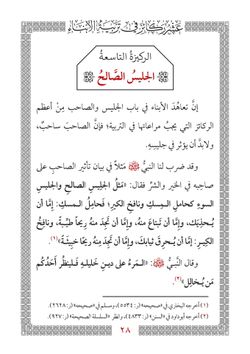 عشر ركائز في تربية الأبناء
الركيزة التاسعة
الجليس الصَّالح
إنَّ تعاهُدَ الأبناء في باب الجليس والصاحب مِنْ أعظم
الركائز التي يجبُ مراعاتها في التربية؛ فإنَّ الصاحبَ ساحبٌ،
ولابدَّ أن يؤثر في جليسه.
وقد ضرب لنا النبيُّ ﷺ مَثلاً في بيان تأثير الصاحب على
صاحبه في الخير والشرِّ فقال: «مَثَلُ الجليسِ الصالحِ والجليسِ
السوءِ كحاملِ المِسكِ ونافخِ الكيرِ؛ فَحَامِلُ المسكِ: إمَّا أن
يُحذِيَكَ، وإمَّا أن تَبتاعَ منهُ، وإمَّا أن تَجِدَ منهُ ريحًا طيِّبةً، ونافِخُ
الكِيرِ: إمَّا أن يُحرِقَ ثيابَكَ، وإمَّا أن تَجِدَ مِنهُ ريحًا خَبيثَةً»(١)
وقال النَّبيُّ ﷺ: «المَرءُ على دينِ خَليلهِ فَليَنظُر أَحَدُكُم
مَن يُخالِل»(٢).
(١) أخرجه البخاري في «صحيحه» (ر: ٥٥٣٤)، ومسلم في «صحيحه» (ر: ٢٦٢٨).
(٢) أخرجه أبوداود في «السنن» (ر: ٤٨٣٣)، وانظر «السلسلة الصحيحة» (ر: ٩٢٧).
٢٨